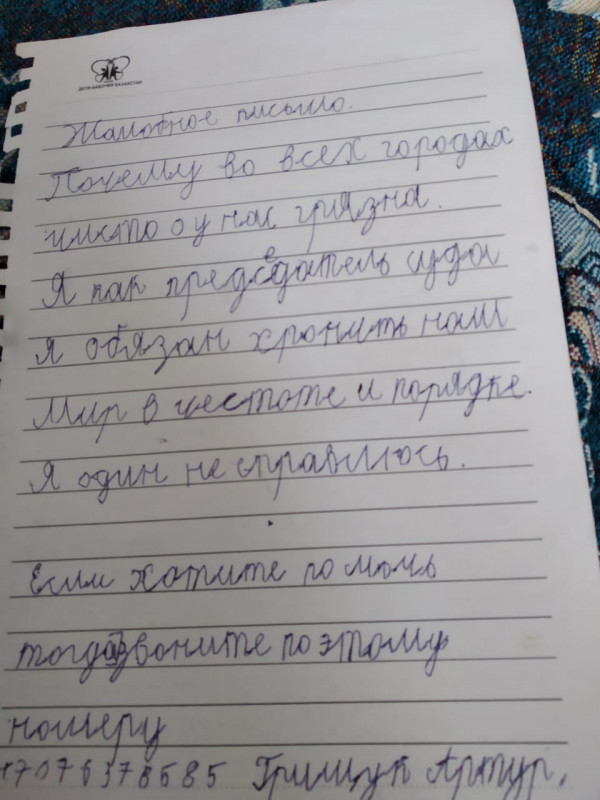 ДЕТИ-БАБОЧКИ КАЗАХСТАН
Жалобное письмо.
Почему во всех городах
чисто а у нас грязна.
Я как председатель суда
я обязан хронить наш
Мир в чистоте и порядке.
Я один не справлюсь.
Если хотите помочь
тогда звоните по этому
номеру
87076378585 Грищук Артур.